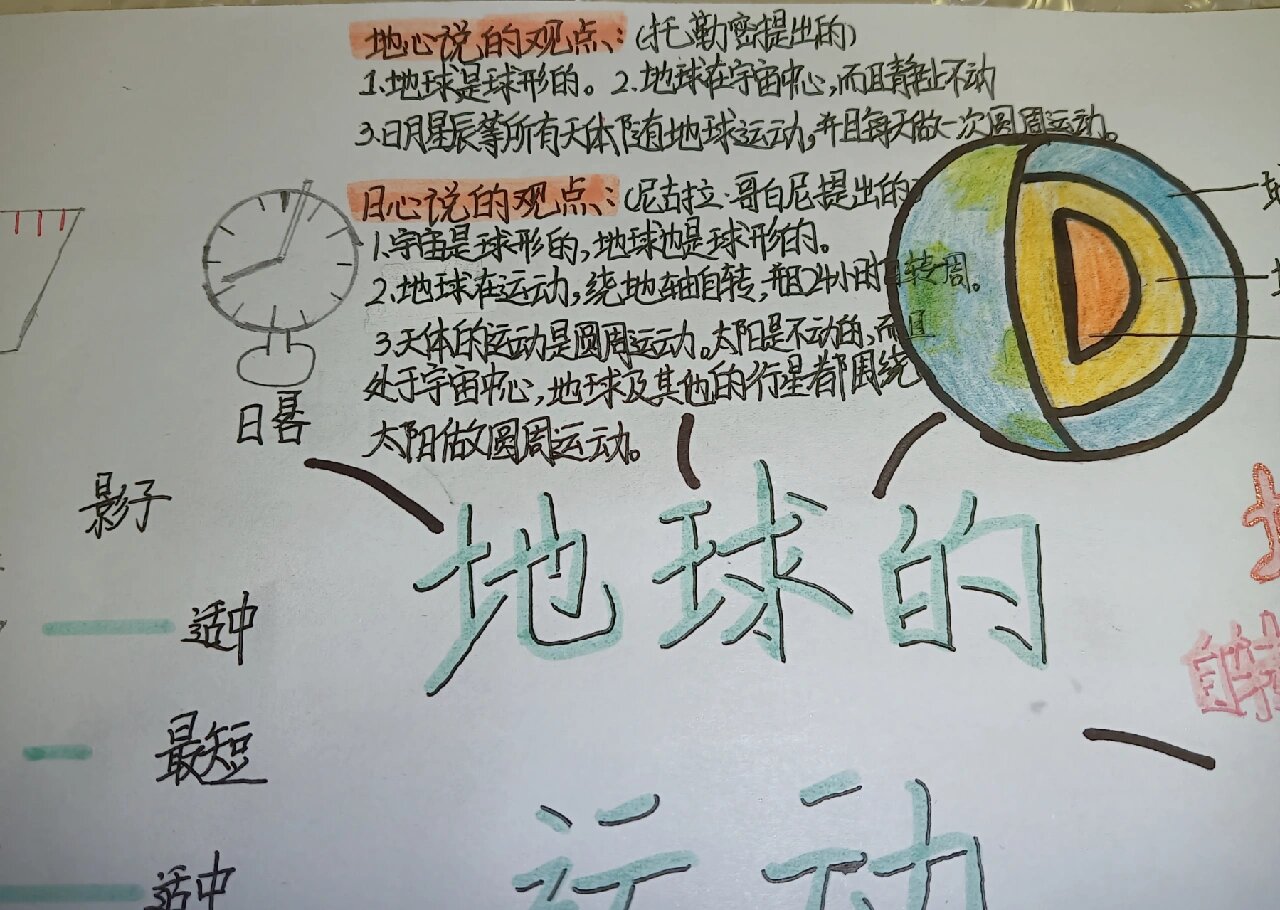 地心说的观点：(托勒密提出的)
1.地球是球形的。2.地球在宇宙中心，而且静止不动
3.日月星辰等所有天体随地球运动，并且每天做一次圆周运动。
日心说的观点：(尼古拉·哥白尼提出的
1.宇宙是球形的，地球也是球形的。
2.地球在运动，绕地轴自转，并且24小时自转一周。
3.天体的运动是圆周运动。太阳是不动的，而且
处于宇宙中心，地球及其他的行星都围绕
太阳做圆周运动。
日晷
影子
适中
最短
适中
地球的
运动
地
自转